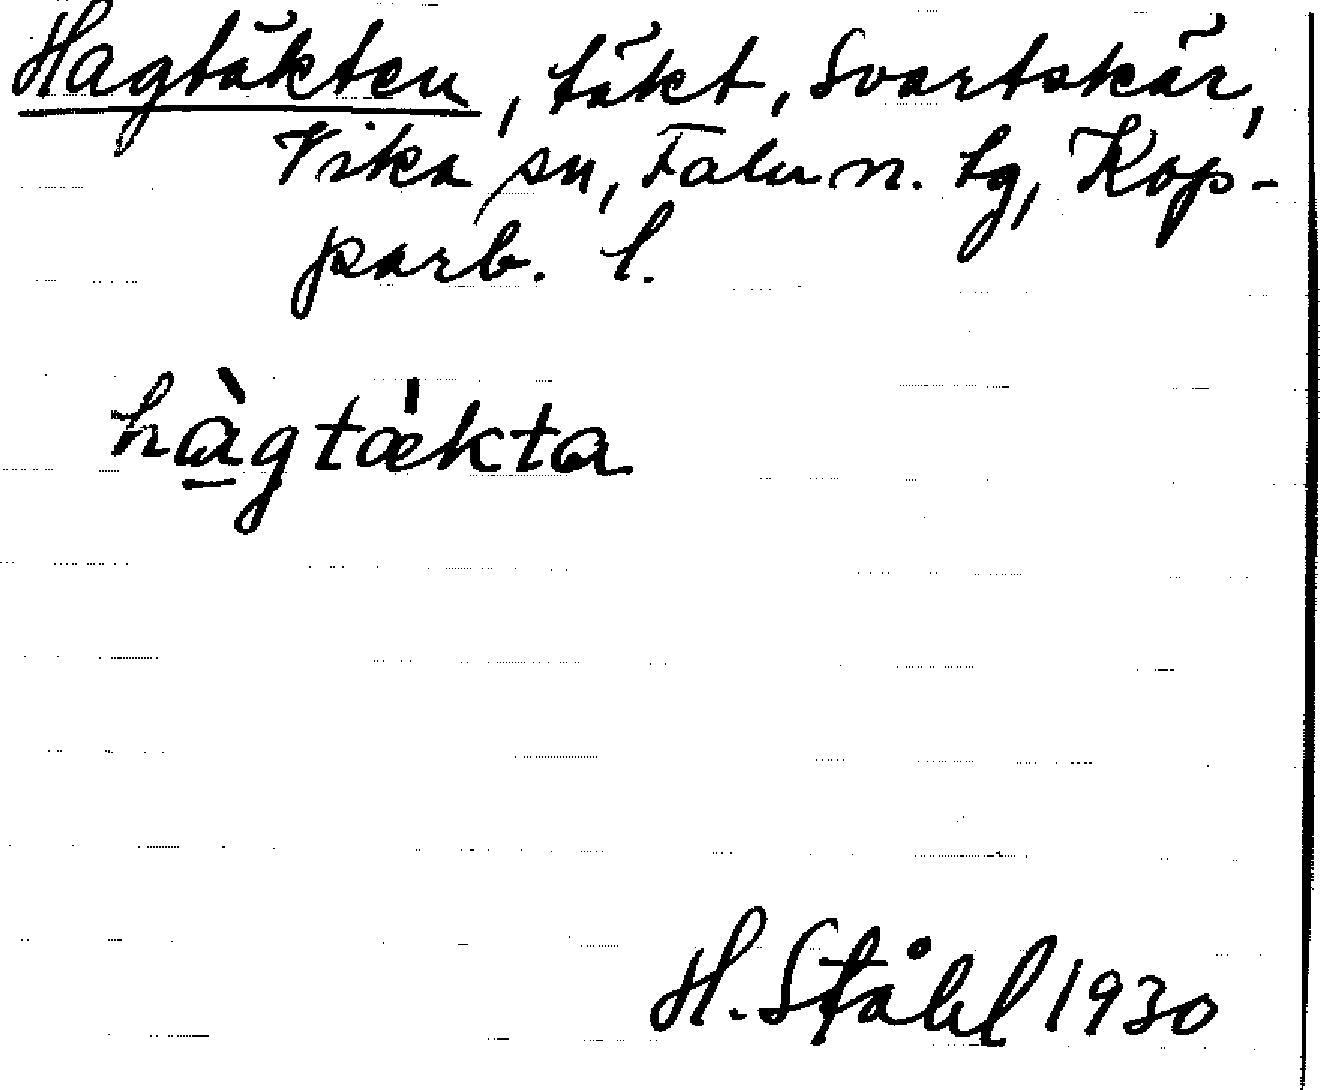 Hagtäkten, täkt, Svartskär,
Vika sn, Falu n. tg, Kop-
parb. l.
hà̠gtæ̍kta
H. Ståhl 1930